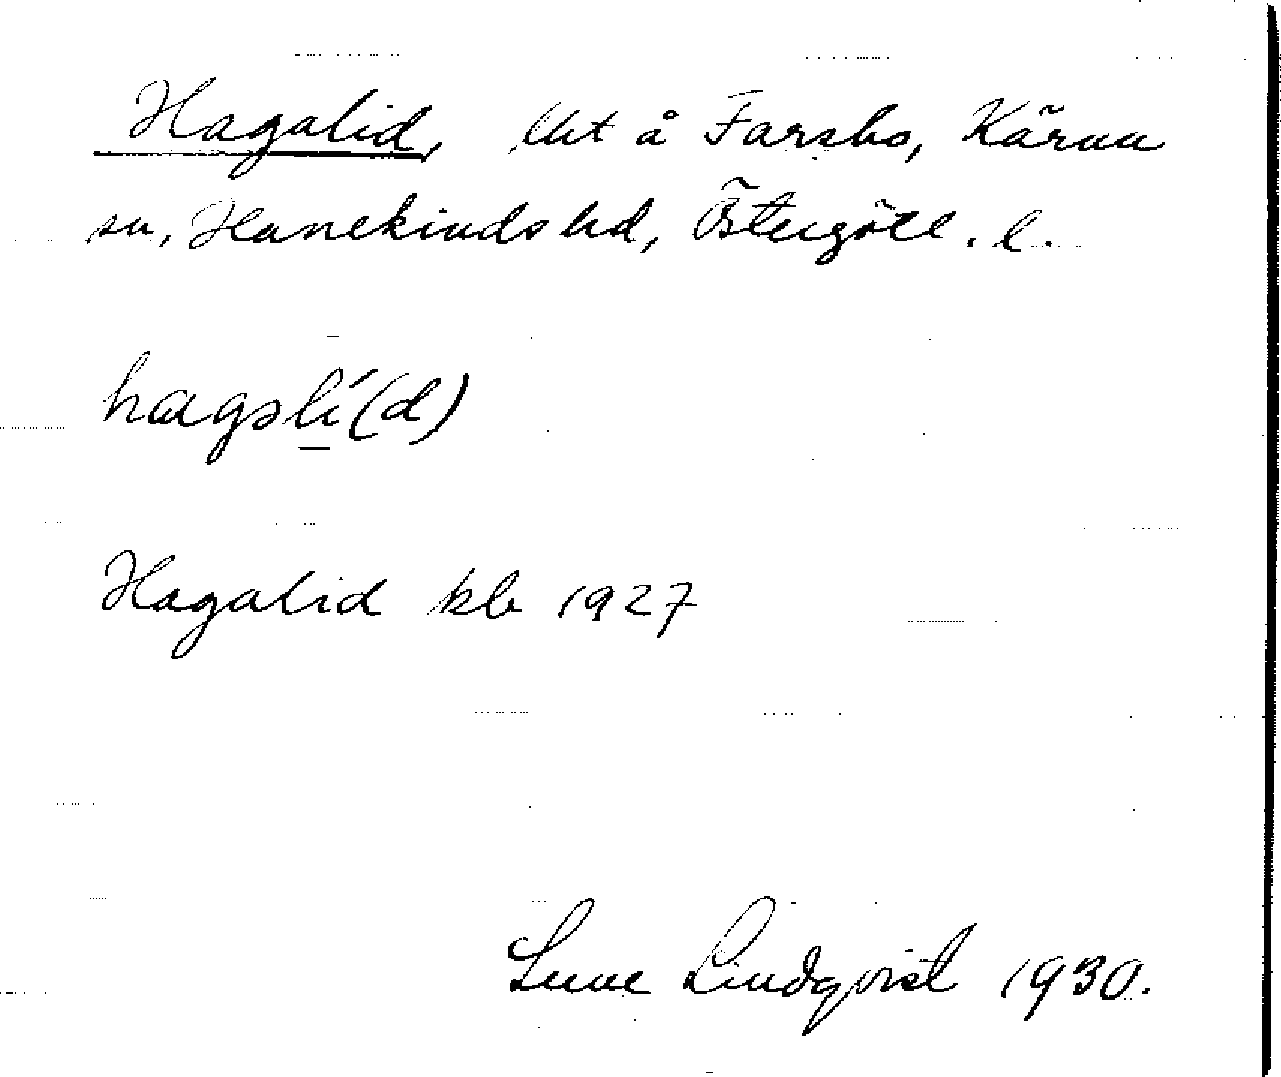 Hagalid, lht å Farsbo, Kärna
sn, Hanekinds hd, Östergötl. l.
hagəlí(d)
Hagalid kb 1927
Sune Lindqvist 1930.